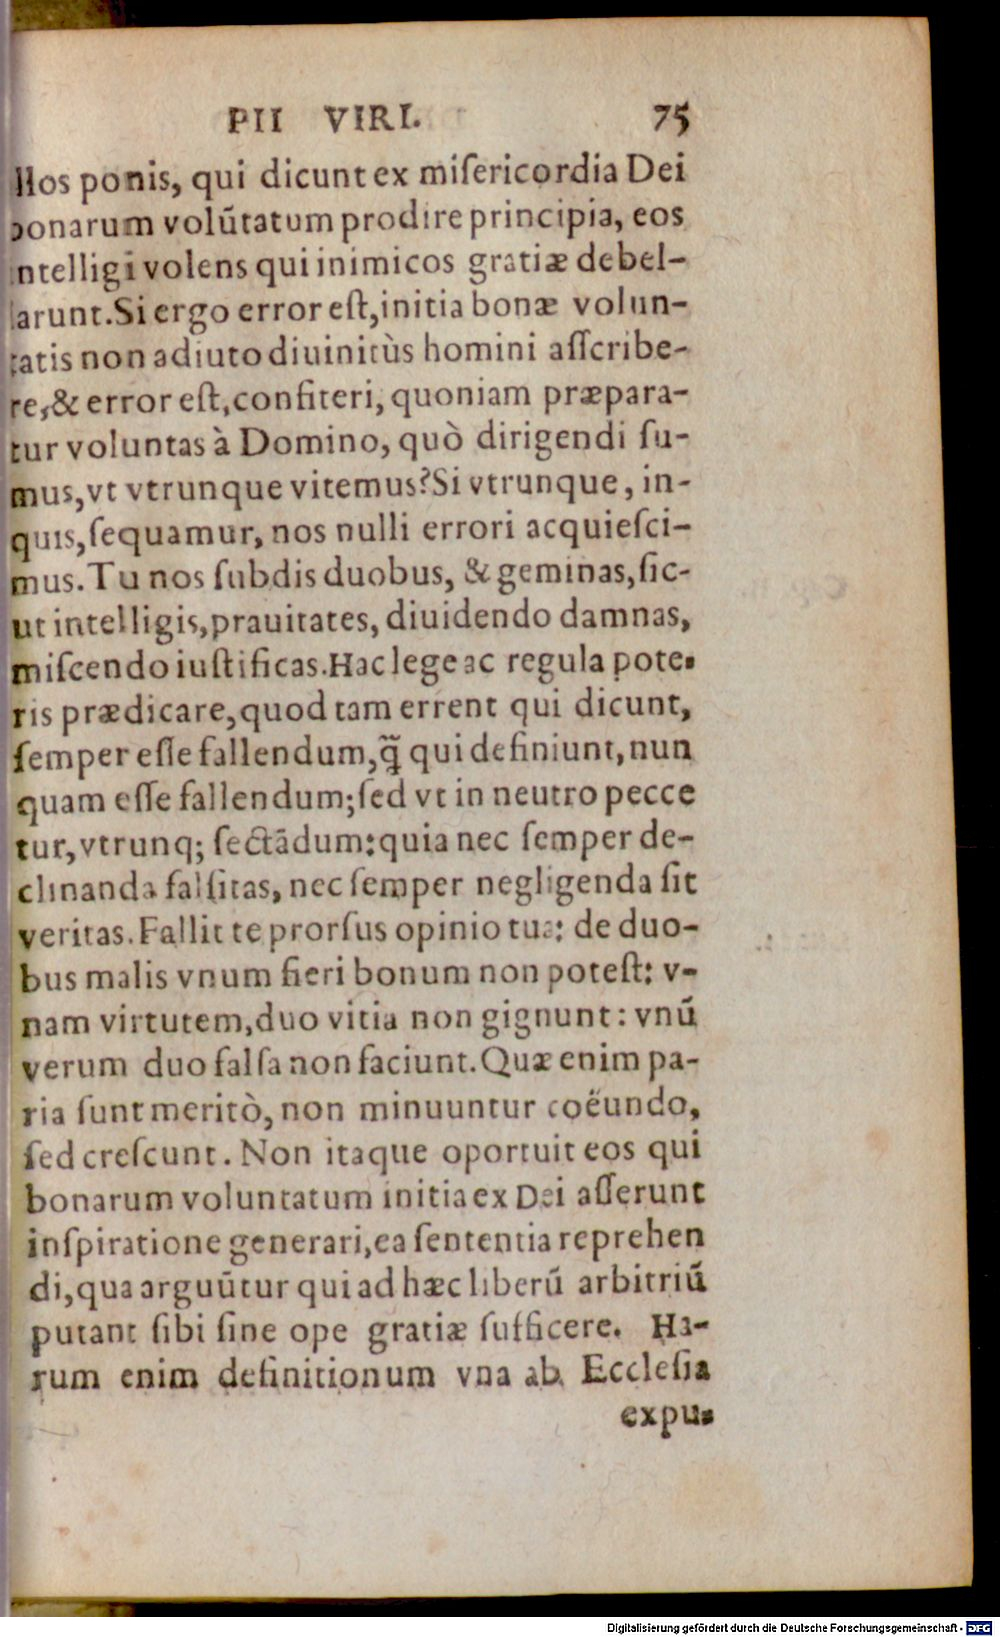 PII VIRI. 75
llos ponis, qui dicunt ex miſericordia Dei
bonarum volũtatum prodire principia, eos
intelligi volens qui inimicos gratiæ debel-
larunt. Si ergo error eſt, initia bonæ volun-
tatis non adiuto diuinitùs homini aſſcribe-
re, & error eſt, confiteri, quoniam præpara-
tur voluntas à Domino, quò dirigendi ſu-
mus, vt vtrunque vitemus? Si vtrunque, in-
quis, ſequamur, nos nulli errori acquieſci-
mus. Tu nos ſubdis duobus, & geminas, ſic-
ut intelligis, prauitates, diuidendo damnas,
miſcendo iuſtificas. Hac lege ac regula pote-
ris prædicare, quod tam errent qui dicunt,
ſemper eſſe fallendum, q̃ qui definiunt, nun
quam eſſe fallendum; ſed vt in neutro pecce
tur, vtrunq; ſectãdum: quia nec ſemper de-
clinanda falſitas, nec ſemper negligenda ſit
veritas. Fallit te prorſus opinio tua: de duo-
bus malis vnum fieri bonum non poteſt: v-
nam virtutem, duo vitia non gignunt: vnũ
verum duo falſa non faciunt. Quæ enim pa-
ria ſunt meritò, non minuuntur coëundo,
ſed creſcunt. Non itaque oportuit eos qui
bonarum voluntatum initia ex Dei aſſerunt
inſpiratione generari, ea ſententia reprehen
di, qua arguũtur qui ad hæc liberũ arbitriũ
putant ſibi ſine ope gratiæ ſufficere. Ha-
rum enim definitionum vna ab Eccleſia
expu-
Digitalisierung gefördert durch die Deutsche Forschungsgemeinschaft - DFG